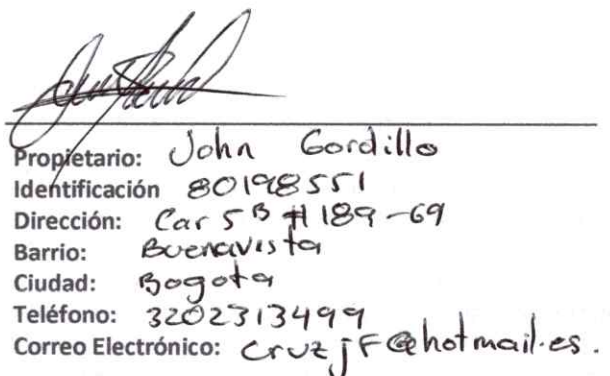 Propietario: John Gordillo
Identificación 80198551
Dirección: Car 5B # 189-69
Barrio: Buenavista
Ciudad: Bogota
Teléfono: 3202313499
Correo Electrónico: cruzjF@hotmail.es.